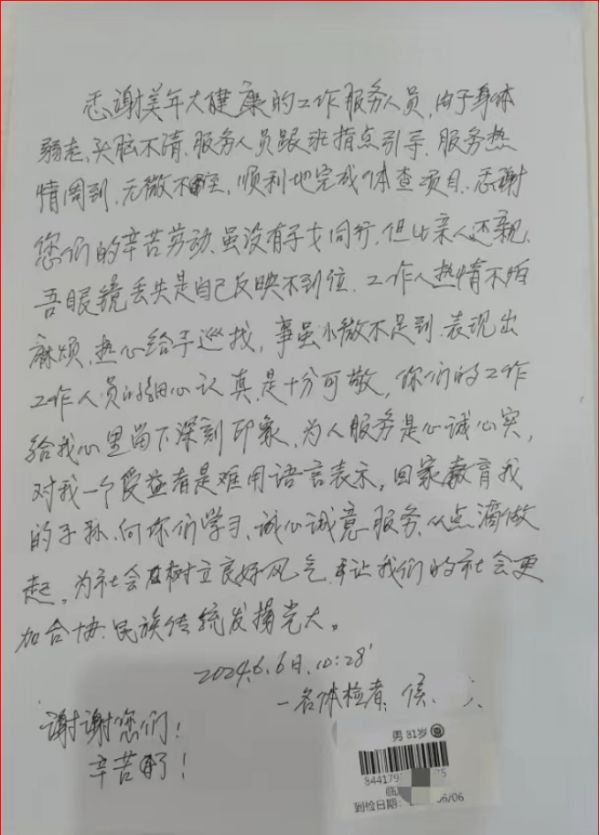 感谢美年大健康的工作服务人员,由于身体
弱老、头脑不清、服务人员跟班指点引导、服务热
情周到、无微不至,顺利地完成体查项目、感谢
您们的辛苦劳动、虽没有子女同行、但比亲人还亲、
吾眼镜丢失是自己反映不到位、工作人热情不怕
麻烦、热心给予巡找,事虽小微不足到、表现出
工作人员的细心认真、是十分可敬,你们的工作
给我心里留下深刻印象、为人服务是心诚心实,
对我一个受益者是难用语言表示,回家教育我
的子孙、向你们学习、诚心诚意服务、从点滴做
起,为社会树立良好风气、让我们的社会更
加合协、民族传统发扬光大。
2024.6.6日、10:28'
一名体检者、侯
谢谢您们!
辛苦了!
男 81岁
临
到检日期: 06/06